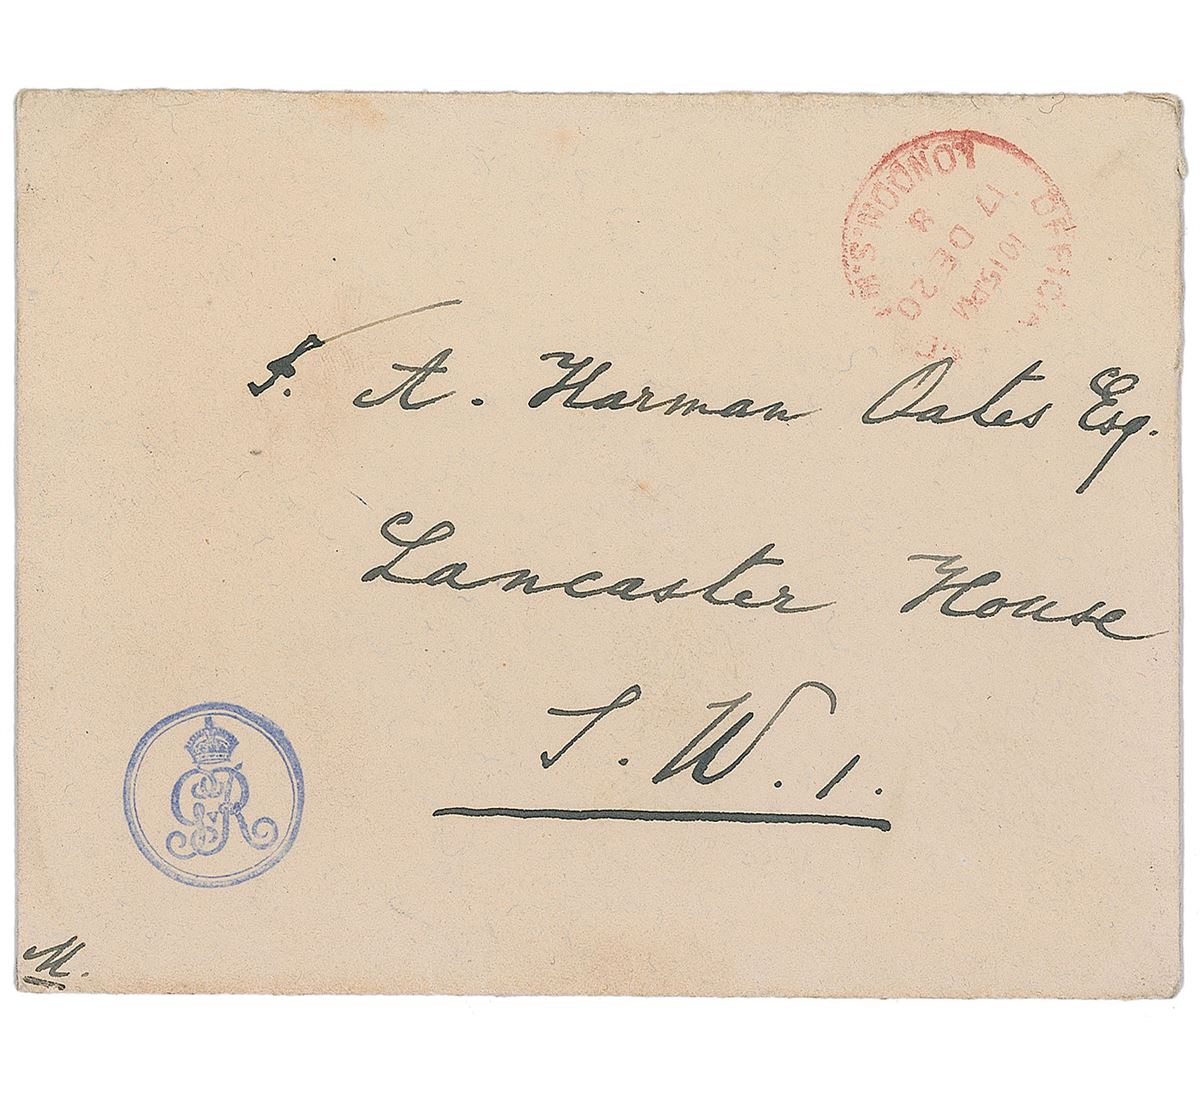 LONDON·S·W·
OFFICIA
10 15 PM
17 DE 20
8
F. A. Harman Oates Esq.
Lancaster House
S. W. 1.
GR
M.